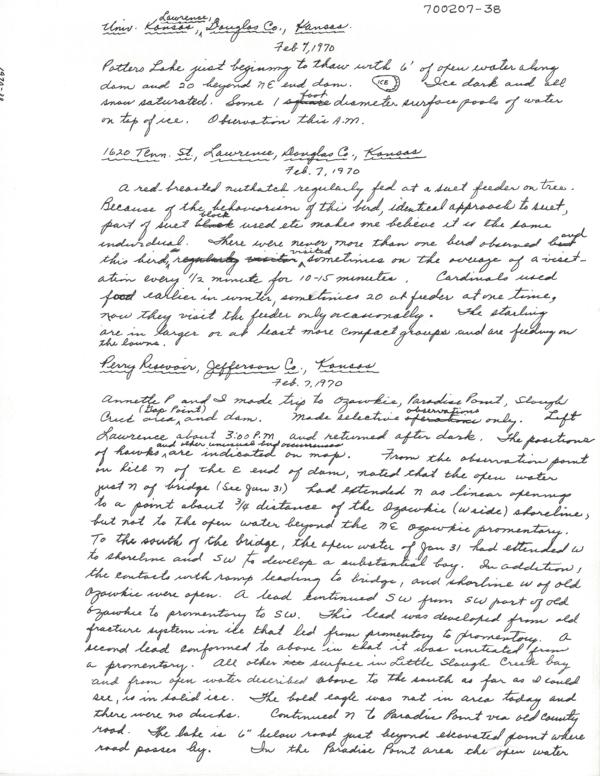 700207-38
Lawrence,
Univ. Kansas, Douglas Co., Kansas.
Feb 7, 1970
Potters Lake just beginning to thaw with 6' of open water along
dam and 20 beyond NE end dam. ICE Ice dark and all
snow saturated. Some 1 foot diameter surface pools of water
on top of ice. Observation this A.M.
1620 Tenn. St., Lawrence, Douglas Co., Kansas
Feb. 7, 1970
A red-breasted nuthatch regularly fed at a suet feeder on tree.
Because of the behaviorism of this bird, identical approach to suet,
part of suet block used etc makes me believe it is the same
individual. There were never more than one bird observed and
this bird, regularly visited, sometimes on the average of a visit-
ation every 1/2 minute for 10-15 minutes. Cardinals used
food earlier in winter, sometimes 20 at feeder at one time,
now they visit the feeder only occasionally. The starling
are in larger or at least more compact groups and are feeding on
the lawns.
Perry Resevoir, Jefferson Co., Kansas
Feb. 7, 1970
Annette P and I made trip to Ozawkie, Paradise Point, Slough
(Gap Point)
Creek area, and dam. Made selective observations only. Left
Lawrence about 3:00 P.M. and returned after dark. The positions
of hawks and other unusual bird occurrences are indicated on map. From the observation point
on hill N of the E end of dam, noted that the open water
just N of bridge (See Jan 31) had extended N as linear openings
to a point about 3/4 distance of the Ozawkie (W side) shoreline,
but not to the open water beyond the NE Ozawkie promentary.
To the south of the bridge, the open water of Jan 31 had extended W
to shoreline and SW to develop a substantial bay. In addition,
the contacts with ramp leading to bridge, and shorline W of old
Ozawkie were open. A lead continued SW from SW part of old
Ozawkie to promentory to SW. This lead was developed from old
fracture system in ice that led from promentory to promentory. A
second lead conformed to above in that it was initiated from
a promentary. All other surface in Little Slough Creek bay
and from open water described above to the south as far as I could
see, is in solid ice. The bald eagle was not in area today and
there were no ducks. Continued N to Paradise Point via old county
road. The lake is 6" below road just beyond excavated point where
road passes by. In the Paradise Point area the open water